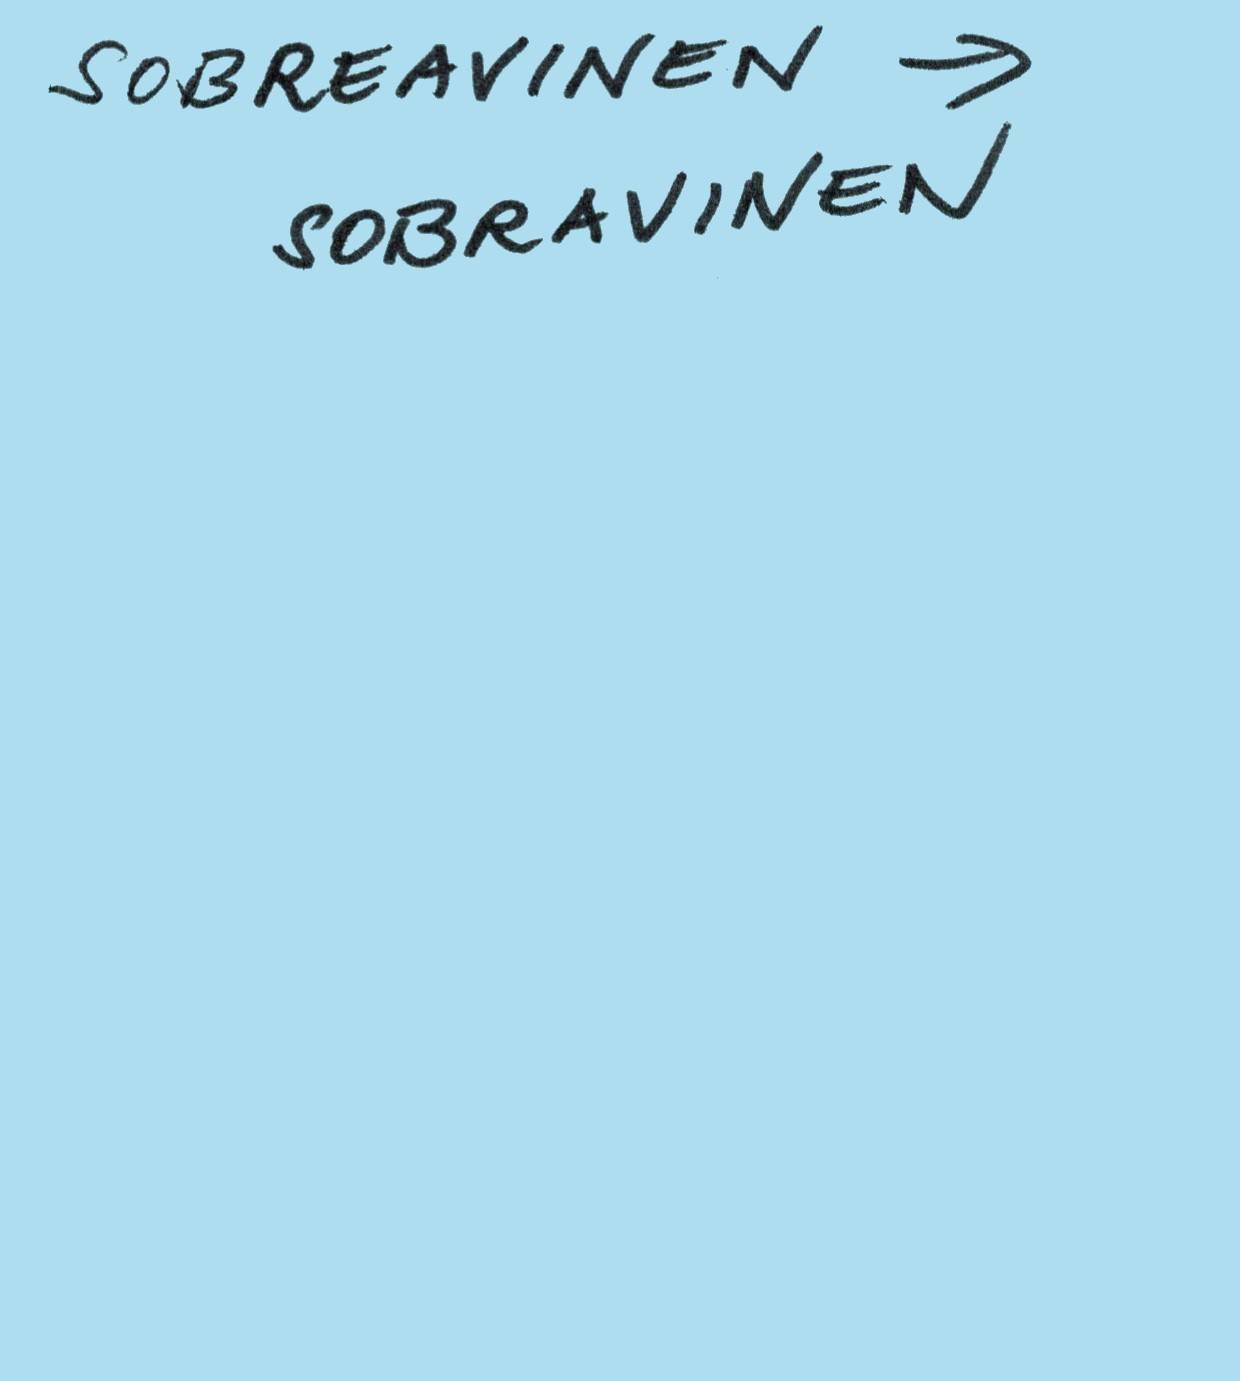 SOBREAVINEN →
SOBRAVINEN